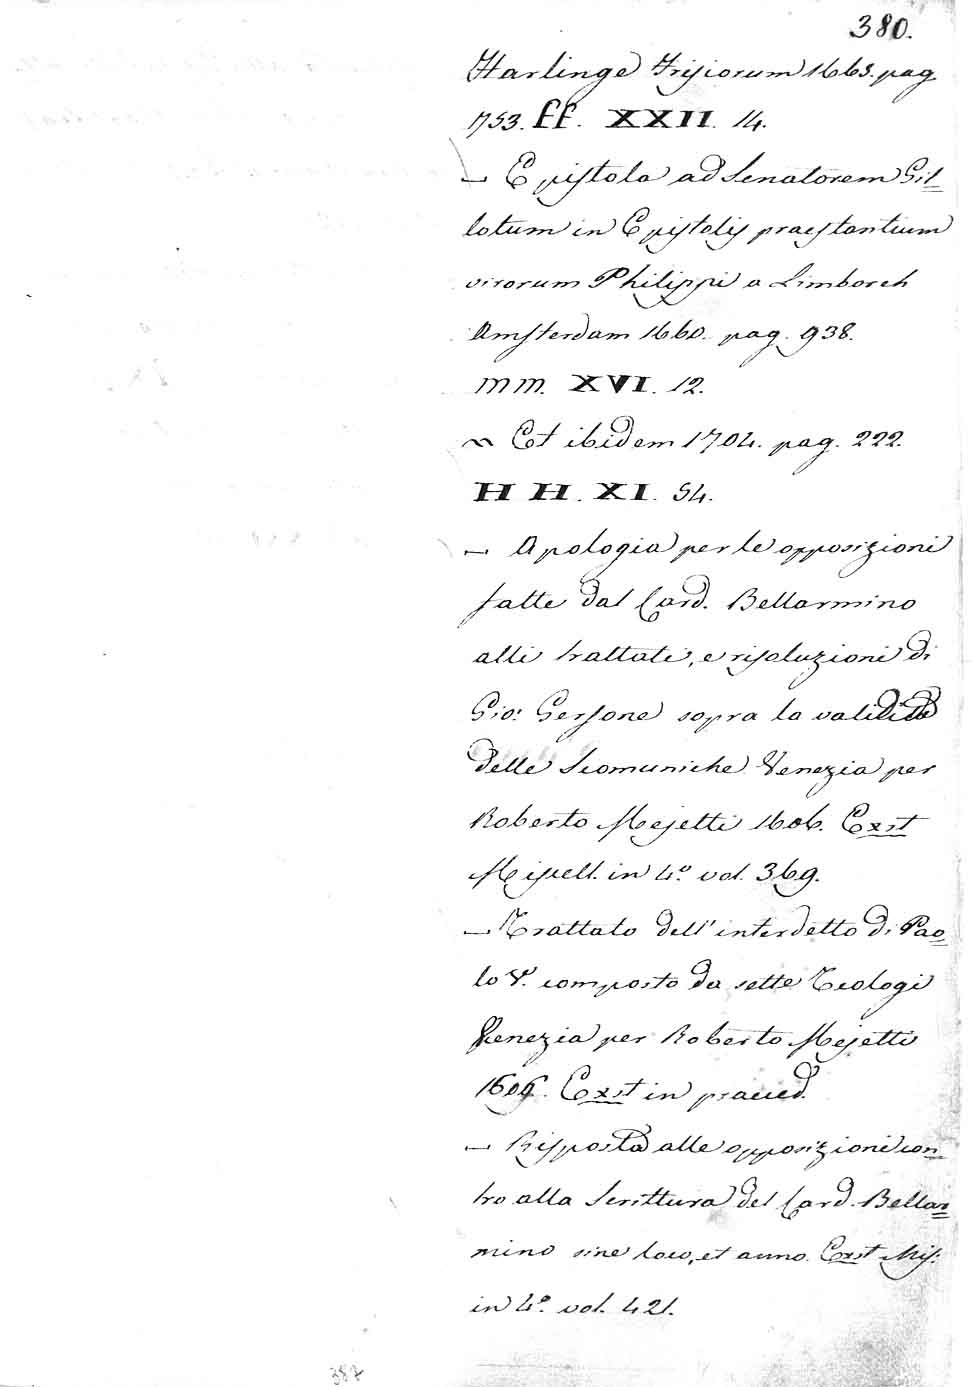 380.
Harlinge Frisiorum 1663. pag
1753. ff. XXII. 14.
— Epistola ad Senatorem Gil=
lotum in Epistolis praestantium
virorum Philippi a Limborch
Amsterdam 1660. pag. 938.
mm. XVI. 12.
~ Et ibidem 1704. pag. 222.
HH. XI. 54.
— Apologia per le opposizioni
fatte dal Card. Bellarmino
alli trattati, e risoluzioni di
Gio: Gersone sopra la validità
delle Scomuniche Venezia per
Roberto Mejetti 1606. Exst
Miscell. in 4.º vol. 369.
— Trattato dell'interdetto di Pao=
lo V. composto da sette Teologi
Venezia per Roberto Mejetti
1606. Exst in praeced.
— Risposta alle opposizioni con=
tro alla Scrittura del Card. Bellar=
mino sine loco, et anno. Exst Mis:
in 4.º vol. 421.
387